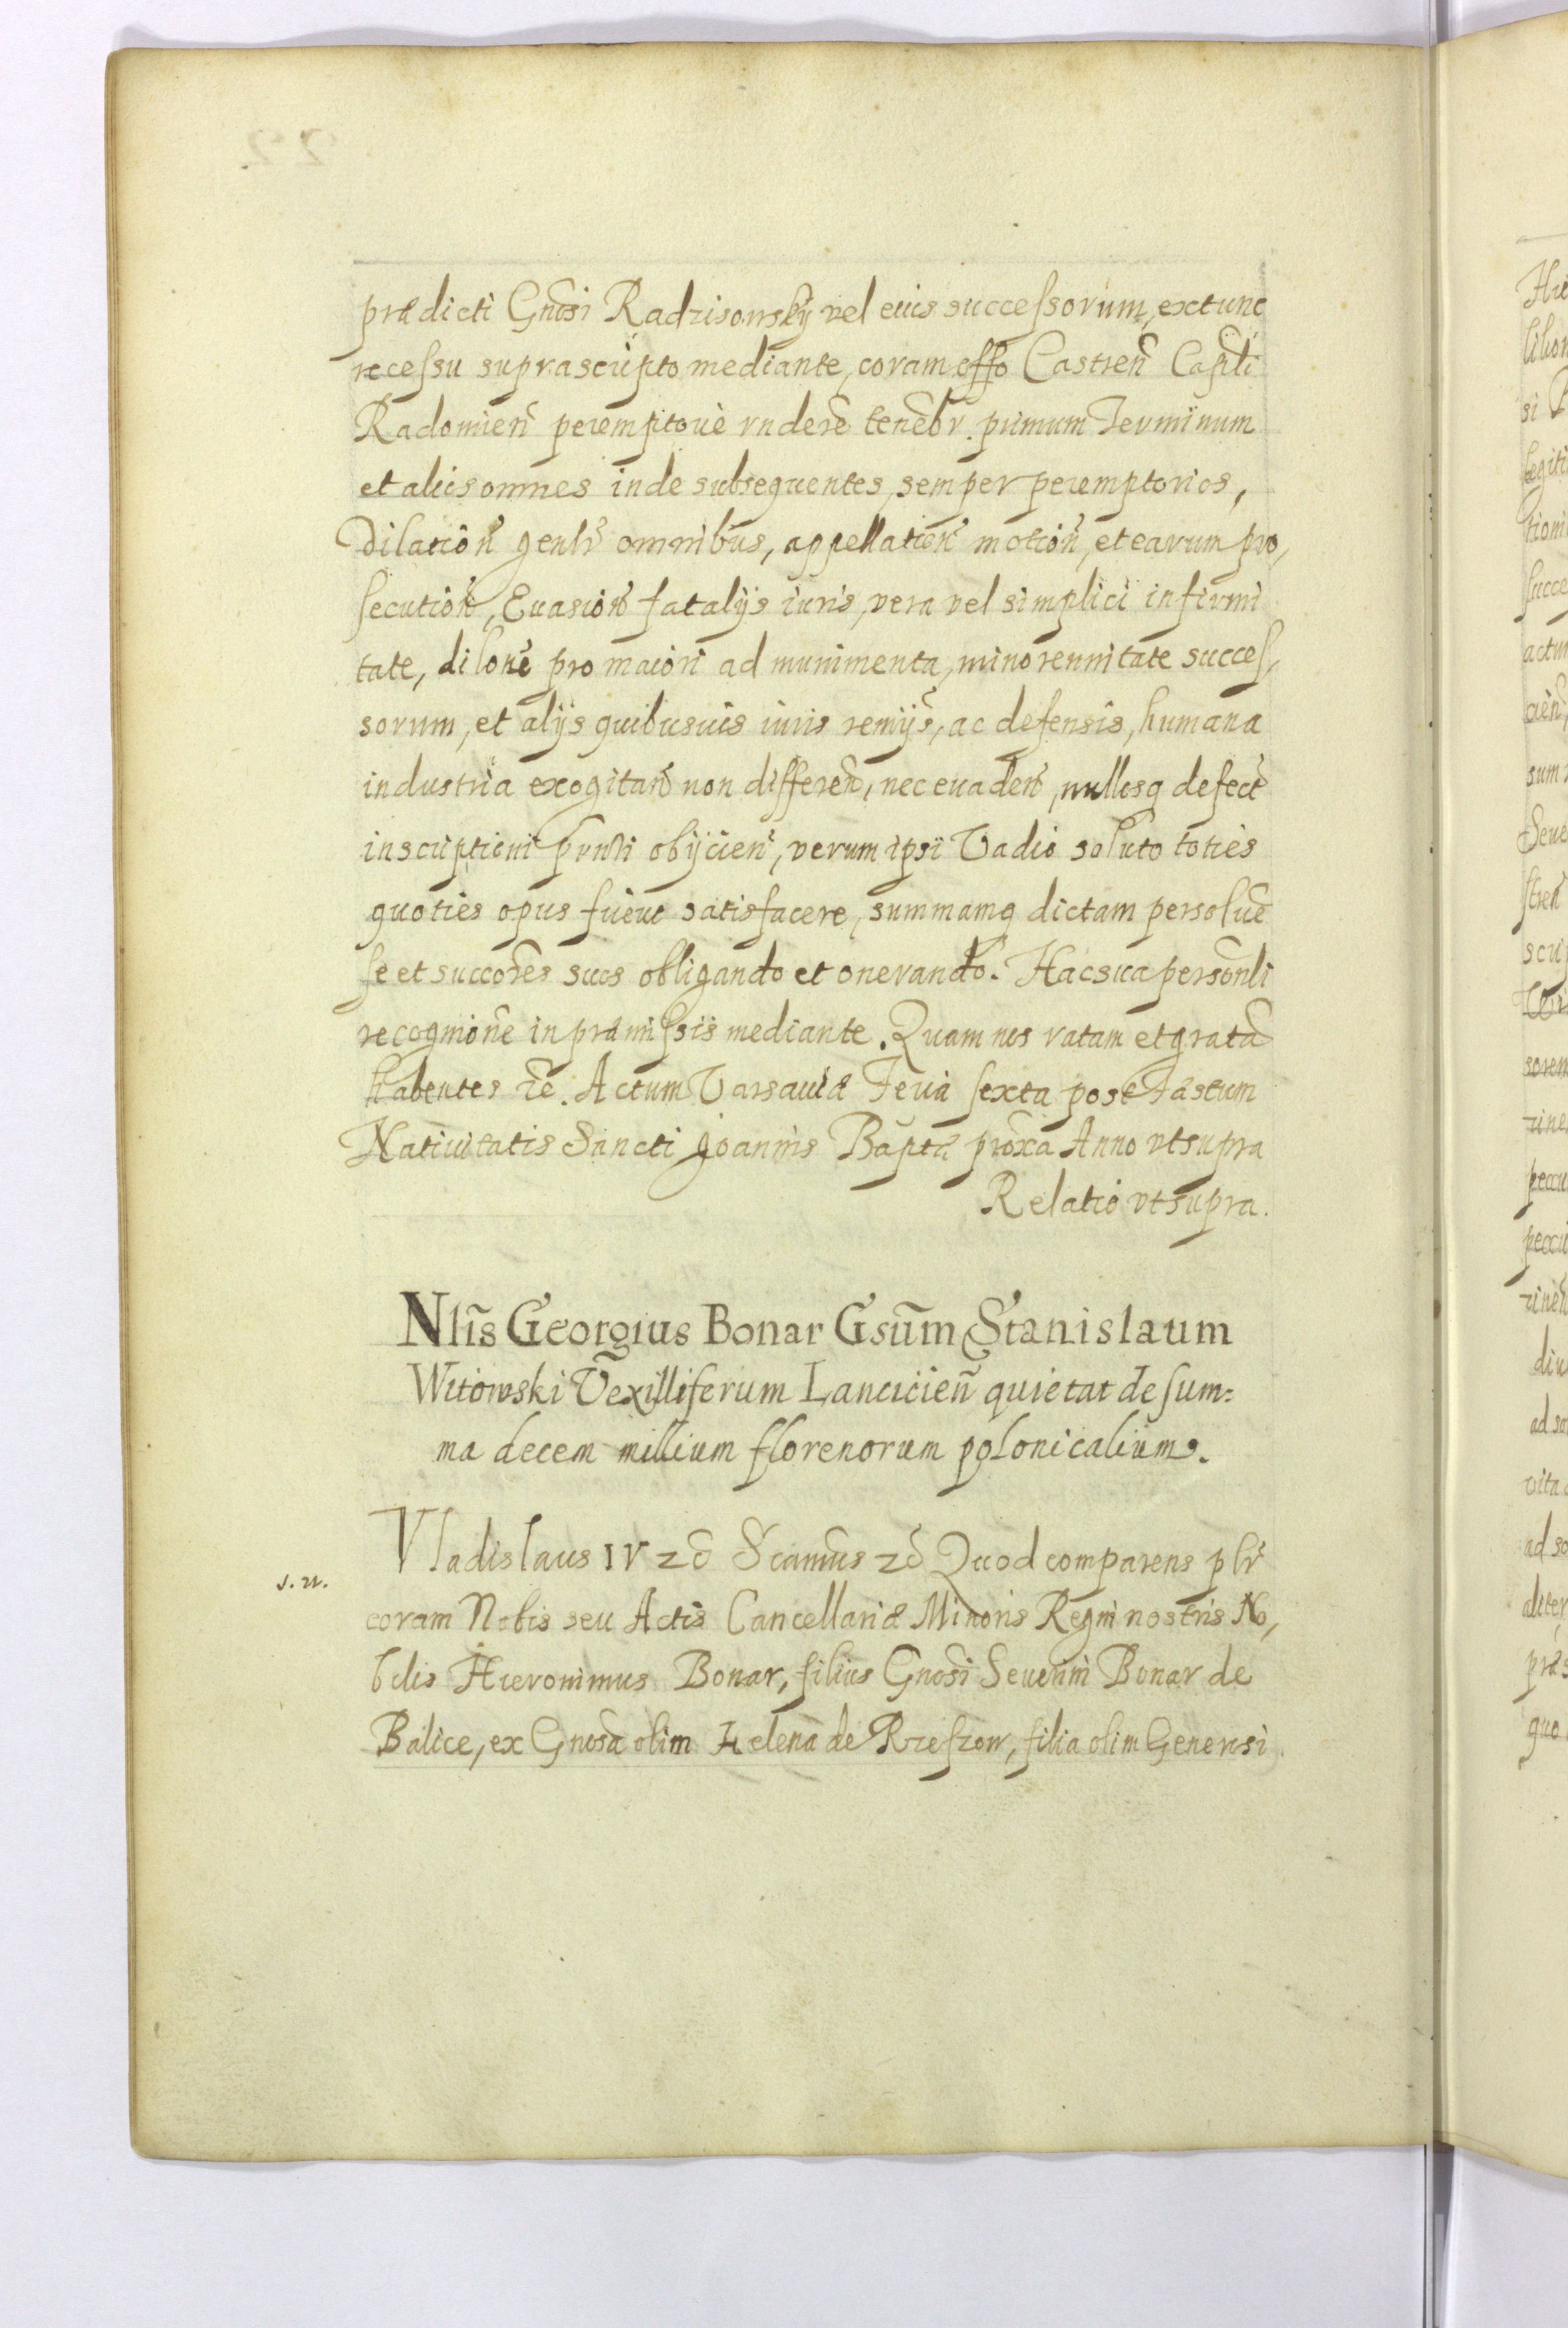 prædicti Gnosi Radziisowsky vel eius successorum, extunc
recessu suprascripto mediante, coram offo Castren Capitli
Radomien peremptorie rndere tenebr. primum Terminum
et alios omnes inde subsequentes, semper peremptorios,
Dilation genlr omnibus, appellation motion, et earum pro,
secution, Euasion fatalijs iuris, vera vel simplici infirmi
tate, dilone pro maiori ad munimenta, minorennitate succes,
sorum, et alijs quibusuis iuris remijs, ac defensis, humana
industria exogitan non differen, nec euaden, nullosq defect
inscriptioni prnti obijcien, verum ipsi Vadio soluto toties
quoties opus fuerit satisfacere, summamq dictam persolue
se et succores suos obligando et onerando. Hac sua personli
recognione in præmissis mediante. Quam nos ratam et grata
habentes zc. Actum Varsauiæ Feria sexta post Festum
Natiuitatis Sancti Joannis Baptæ proxa Anno vt supra
Relatio vt supra.
Nlis Georgius Bonar Gsum Stanislaum
Witowski Vexilliferum Lancicien quietat de sum=
ma decem millium florenorum polonicalium.
s. n.
Vladislaus IV zc Scamus zc Quod comparens plr
coram Nobis seu Actis Cancellariæ Minoris Regni nostris No,
bilis Hieronimus Bonar, filius Gnosi Seuerini Bonar de
Balice, ex Gnosa olim Helena de Rzeszow, filia olim Generosi